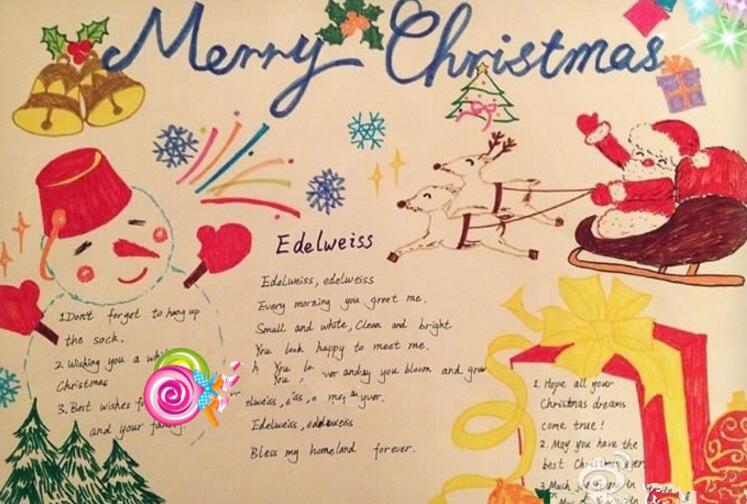 Merry Christmas
Edelweiss
Edelweiss, edelweiss
Every morning you greet me.
Small and white, Clean and bright
You look happy to meet me.
You
You, ver anday you bloom and grow
elweiss,
Edelweiss, edelweiss
Bless my homeland forever.
1.Don't forget to hang up
the sock.
2. Wishing you a
Christmas
3. Best wishes
and your
1. Hope all your
Christmas dreams
come true!
2. May you have the
best Christmas ever
3. Much